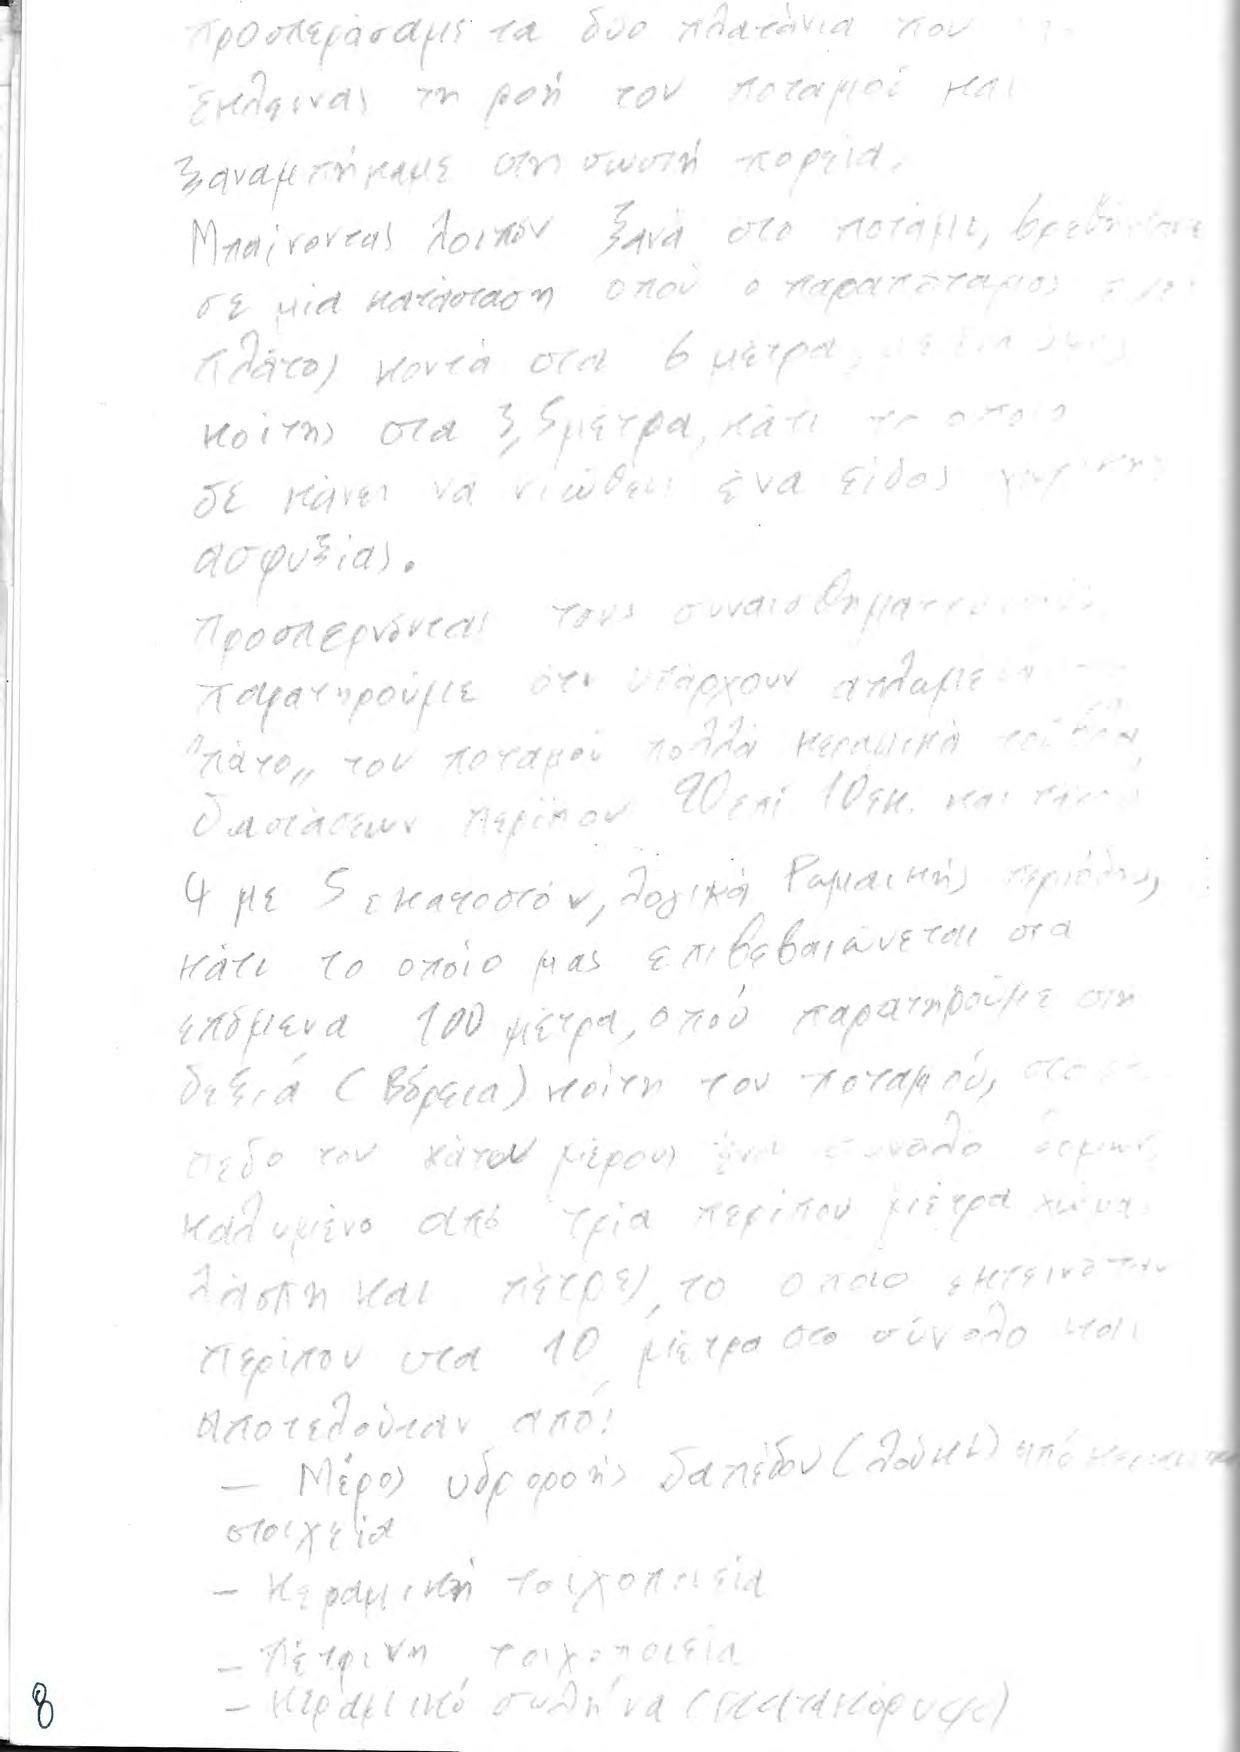 προσπεράσαμε τα δύο πλατάνια που
έκλειναν τη ροή του ποταμού και
ξαναμπήκαμε στη σωστή πορεία.
Μπαίνοντας λοιπόν ξανά στο ποτάμι, βρεθήκαμε
σε μία κατάσταση οπού ο παραπόταμος έχει
πλάτος κοντά στα 6 μέτρα,
κοίτης στα 3,5 μέτρα, κάτι το οποίο
σε κάνει να νιώθεις ένα είδος
ασφυξίας.
Προσπερνώντας τους
παρατηρούμε ότι υπάρχουν
"πάτο" του ποταμού πολλά κεραμικά τούβλα,
διαστάσεων περίπου 20 επί 10 εκ. και
4 με 5 εκατοστών, λογικά Ρωμαικής περιόδου,
κάτι το οποίο μας επιβεβαιώνεται στα
επόμενα 100 μέτρα, οπού παρατηρούμε στη
δεξιά (Βόρεια) κοίτη του ποταμού,
πεδο του κάτου μέρους ένα σύνολο δομών
καλυμένο από τρία περίπου μέτρα χώμα
λάσπη και πέτρες, το οποίο εκτεινόταν
περίπου στα 10 μέτρα στο σύνολο και
αποτελούταν από:
– Μέρος υδροροής δαπέδου (λούκι) από
στοιχεία
– Κεραμική τοιχοποιεία
– Πέτρινη τοιχοποιεία
– Κεραμικό σωλήνα (κατακόρυφο)
8